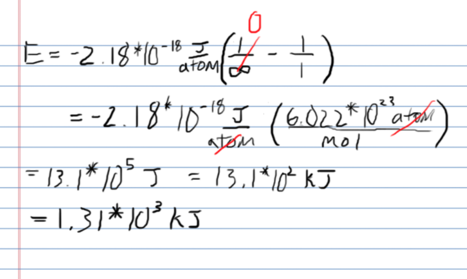 0
E = -2.18*10^-18 J/atom (1/∞ - 1/1)
= -2.18*10^-18 J/atom (6.022*10^23 atom/mol)
= 13.1*10^5 J = 13.1*10^2 kJ
= 1.31*10^3 kJ